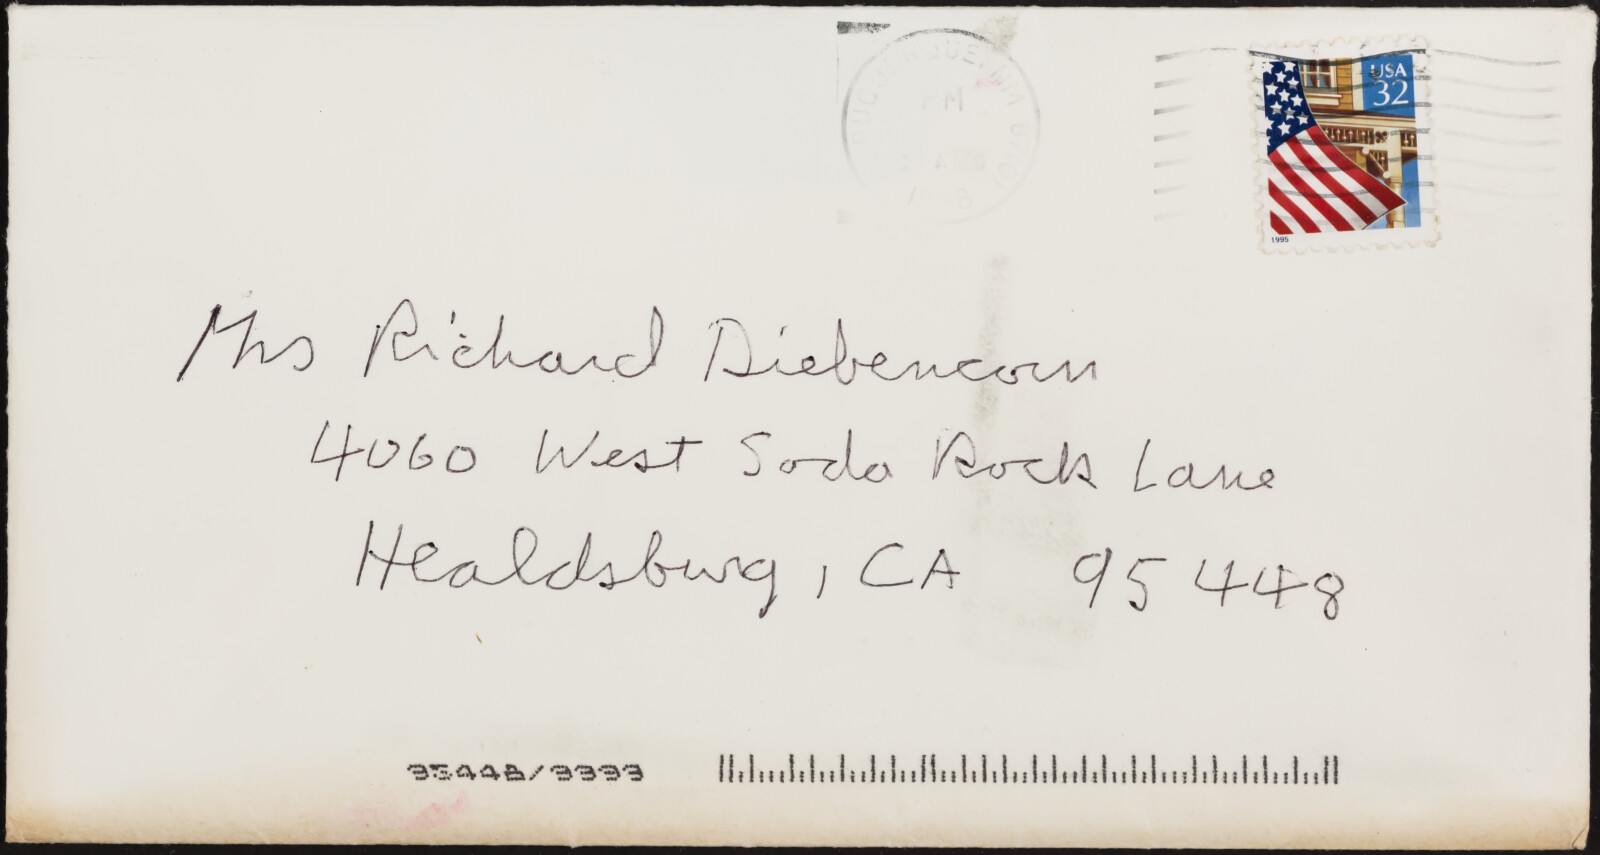 USA
32
1995
Mrs Richard Diebencorn
4060 West Soda Rock Lane
Healdsburg, CA 95448
95448/9999